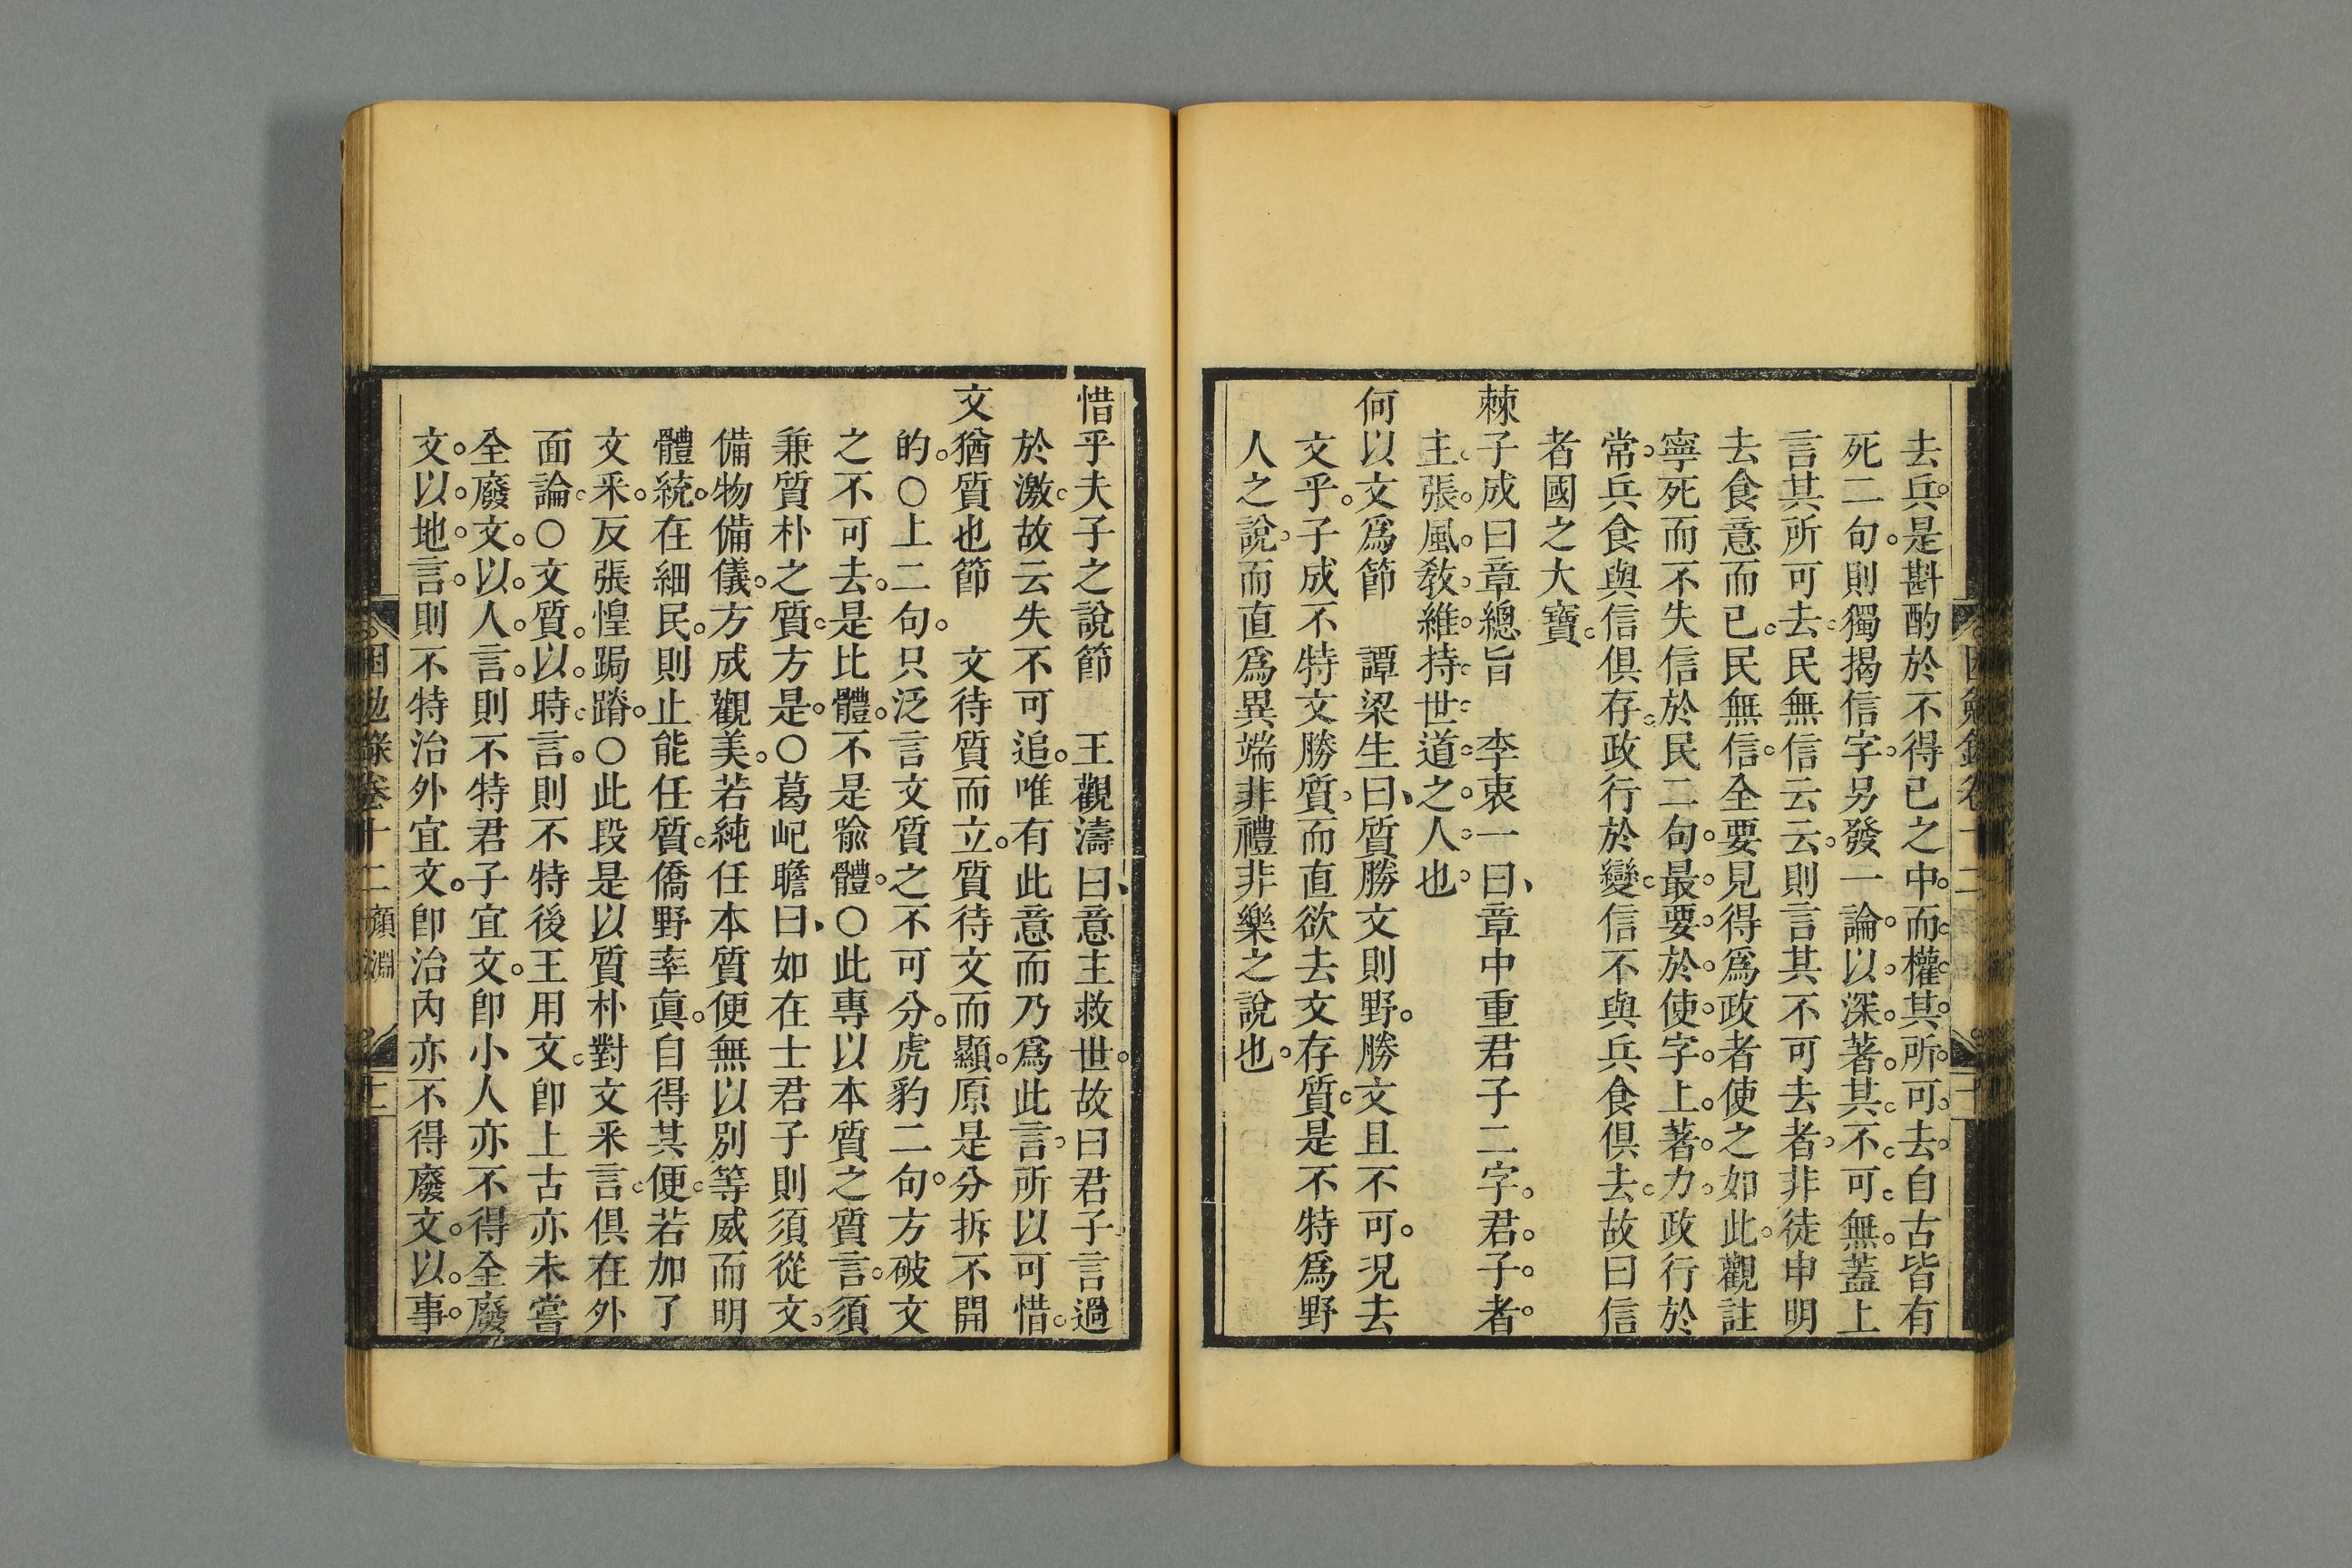 去兵是斟酌於不得已之中而權其所可去自古皆有
死二句則獨揭信字另發一論以深著其不可無蓋上
言其所可去民無信云云則言其不可去者非徒申明
去食意而已民無信全要見得爲政者使之如此觀註
寧死而不失信於民二句最要於使字上著力政行於
常兵食與信俱存政行於變信不與兵食俱去故曰信
者國之大寶
棘子成曰章總旨　李衷一曰章中重君子二字君子者
主張風敎維持世道之人也
何以文爲節　譚梁生曰質勝文則野勝文且不可況去
文乎子成不特文勝質而直欲去文存質是不特爲野
人之說而直爲異端非禮非樂之說也
惜乎夫子之說節　王觀濤曰意主救世故曰君子言過
於激故云失不可追唯有此意而乃爲此言所以可惜
文猶質也節　文待質而立質待文而顯原是分拆不開
的○上二句只泛言文質之不可分虎豹二句方破文
之不可去是比體不是喩體○此專以本質之質言須
兼質朴之質方是○葛屺瞻曰如在士君子則須從文
備物備儀方成觀美若純任本質便無以別等威而明
體統在細民則止能任質僑野率眞自得其便若加了
文釆反張惶跼蹐○此段是以質朴對文釆言俱在外
面論○文質以時言則不特後王用文卽上古亦未嘗
全廢文以人言則不特君子宜文卽小人亦不得全廢
文以地言則不特治外宜文卽治內亦不得廢文以事
困勉錄卷十二 顏淵